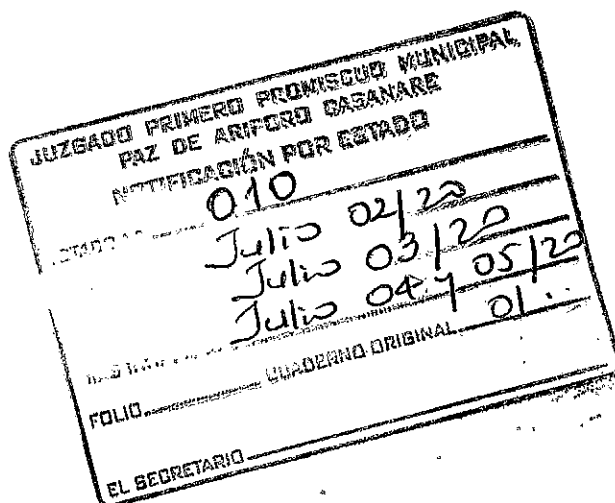 JUZGADO PRIMERO PROMISCUO MUNICIPAL
PAZ DE ARIPORO CASANARE
NOTIFICACIÓN POR ESTADO
010
Julio 02/20
Julio 03/20
Julio 04 y 05/20
FOLIO CUADERNO ORIGINAL 01
EL SECRETARIO